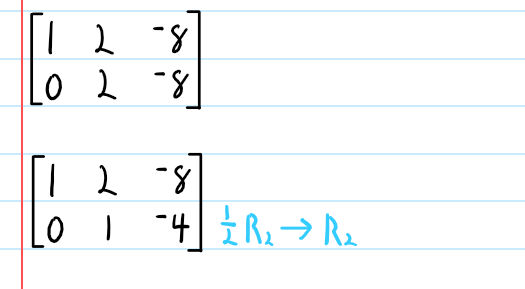 1 2 -8
0 2 -8
1 2 -8
0 1 -4 ½ R₂ → R₂